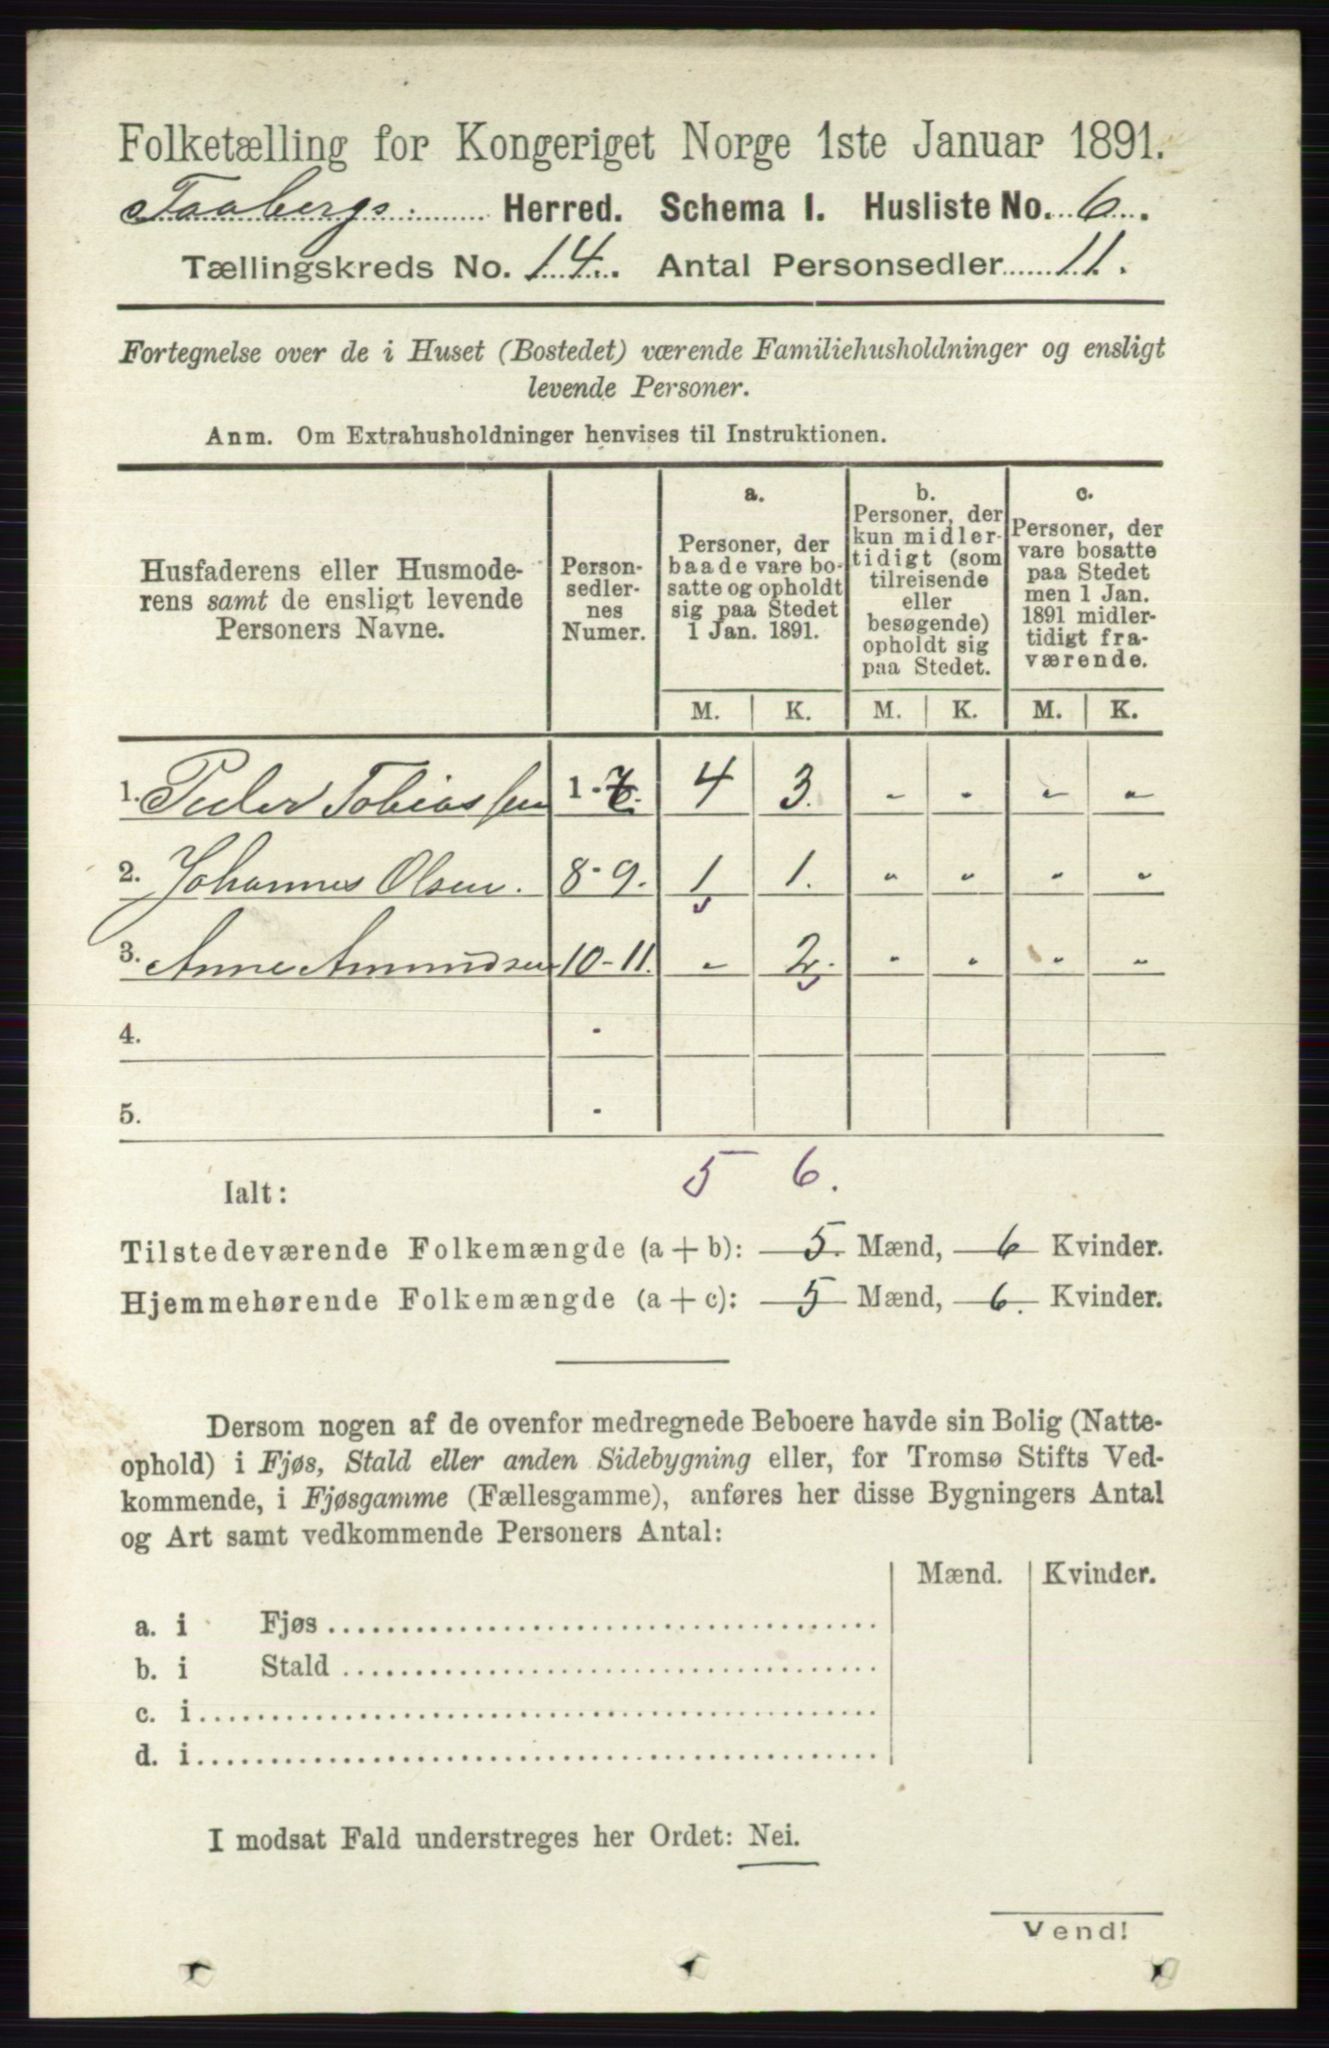 Folketælling for Kongeriget Norge 1ste Januar 1891.
Faabergs Herred. Schema I. Husliste No. 6.
Tællingskreds No. 14. Antal Personsedler 11.
Fortegnelse over de i Huset (Bostedet) værende Familiehusholdninger og ensligt
levende Personer.
Anm. Om Extrahusholdninger henvises til Instruktionen.
Husfaderens eller Husmode-
rens samt de ensligt levende
Personers Navne.
Person-
sedler-
nes
Numer.
a.
Personer, der
baade vare bo-
satte og opholdt
sig paa Stedet
1 Jan. 1891.
b.
Personer, der
kun midler-
tidigt (som
tilreisende
eller
besøgende)
opholdt sig
paa Stedet.
c.
Personer, der
vare bosatte
paa Stedet
men 1 Jan.
1891 midler-
tidigt fra-
værende.
M. K. M. K. M. K.
1. Peder Tobiassen 1-7. 4 3. - - - -
2. Johannes Olsen. 8-9. 1 1. - - - -
3. Anne Amundsen 10-11. - 2. - - - -
4. -
5. -
5 6.
Ialt:
Tilstedeværende Folkemængde (a + b): 5. Mænd, 6 Kvinder.
Hjemmehørende Folkemængde (a + c): 5 Mænd, 6. Kvinder.
Dersom nogen af de ovenfor medregnede Beboere havde sin Bolig (Natte-
ophold) i Fjøs, Stald eller anden Sidebygning eller, for Tromsø Stifts Ved-
kommende, i Fjøsgamme (Fællesgamme), anføres her disse Bygningers Antal
og Art samt vedkommende Personers Antal:
Mænd. Kvinder.
a. i Fjøs
b. i Stald
c. i
d. i
I modsat Fald understreges her Ordet: Nei.
Vend!